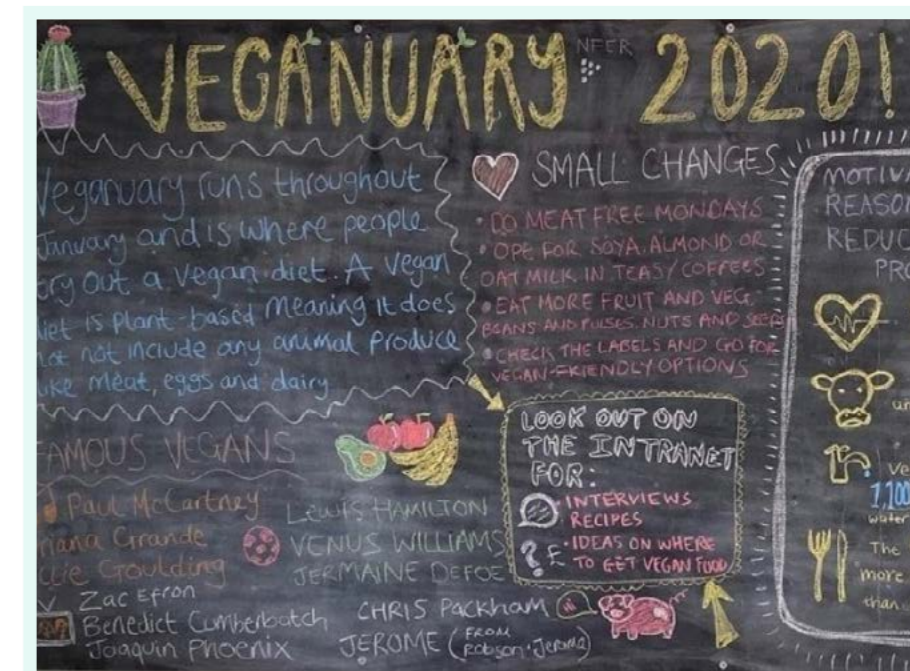 VEGANUARY NFER 2020!
Veganuary runs throughout
January and is where people
try out a vegan diet. A vegan
diet is plant-based meaning it does
not not include any animal produce
like meat, eggs and dairy
SMALL CHANGES
• DO MEAT FREE MONDAYS
• OPE FOR SOYA, ALMOND OR
OAT MILK IN TEAS/COFFEES
• EAT MORE FRUIT AND VEG,
BEANS AND PULSES, NUTS AND SEEDS
• CHECK THE LABELS AND GO FOR
VEGAN-FRIENDLY OPTIONS
FAMOUS VEGANS
Paul McCartney
riana Grande
llie Goulding
Zac Efron
Benedict Cumberbatch
Joaquin Phoenix
LEWIS HAMILTON
VENUS WILLIAMS
JERMAINE DEFOE
CHRIS PACKHAM
JEROME (FROM
Robson + Jerome)
LOOK OUT ON
THE INTRANET
FOR:
• INTERVIEWS
RECIPES
• IDEAS ON WHERE
TO GET VEGAN FOOD
?£
MOTIVA
REASON
REDUC
PRO
un
Ve
1,100
water
The
more
than